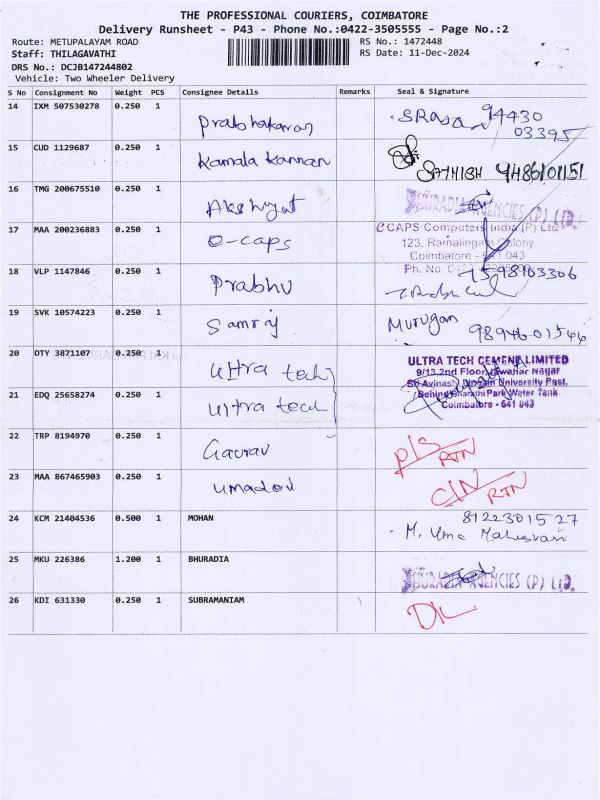 THE PROFESSIONAL COURIERS, COIMBATORE
Delivery Runsheet - P43 - Phone No.:0422-3505555 - Page No.:2
Route: METUPALAYAM ROAD RS No.: 1472448
Staff: THILAGAVATHI RS Date: 11-Dec-2024
DRS No.: DCJB147244802
Vehicle: Two Wheeler Delivery
S No Consignment No Weight PCS Consignee Details Remarks Seal & Signature
14 IXM 507530278 0.250 1 Prabhakaran 94430
03395
15 CUD 1129687 0.250 1 Kamala Kannan SATHISH 9486101151
16 TMG 200675510 0.250 1 BHURADIA AGENCIES (P) LTD.
17 MAA 200236883 0.250 1 e-caps CCAPS Computers India (P) Ltd
123, Ramalingam Colony
Coimbatore - 641 043
Ph. No.
18 VLP 1147846 0.250 1 Prabhu 7598103306
19 SVK 10574223 0.250 1 Samraj Murugan 98946 01546
20 OTY 3871107 0.250 1 Ultra tech ULTRA TECH CEMENT LIMITED
9/13,2nd Floor, Jawahar Nagar
21 EDQ 25658274 0.250 1 Ultra tech Sri Avinashilingam University Post,
Behind Bharathi Park Water Tank
Coimbatore - 641 043
22 TRP 8194970 0.250 1 Gaurav P/S
RTN
23 MAA 867465903 0.250 1 Umadevi C/N
RTN
24 KCM 21404536 0.500 1 MOHAN 8122301527
M. Uma Maheswari
25 MKU 226386 1.200 1 BHURADIA BHURADIA AGENCIES (P) LTD.
26 KDI 631330 0.250 1 SUBRAMANIAM DL